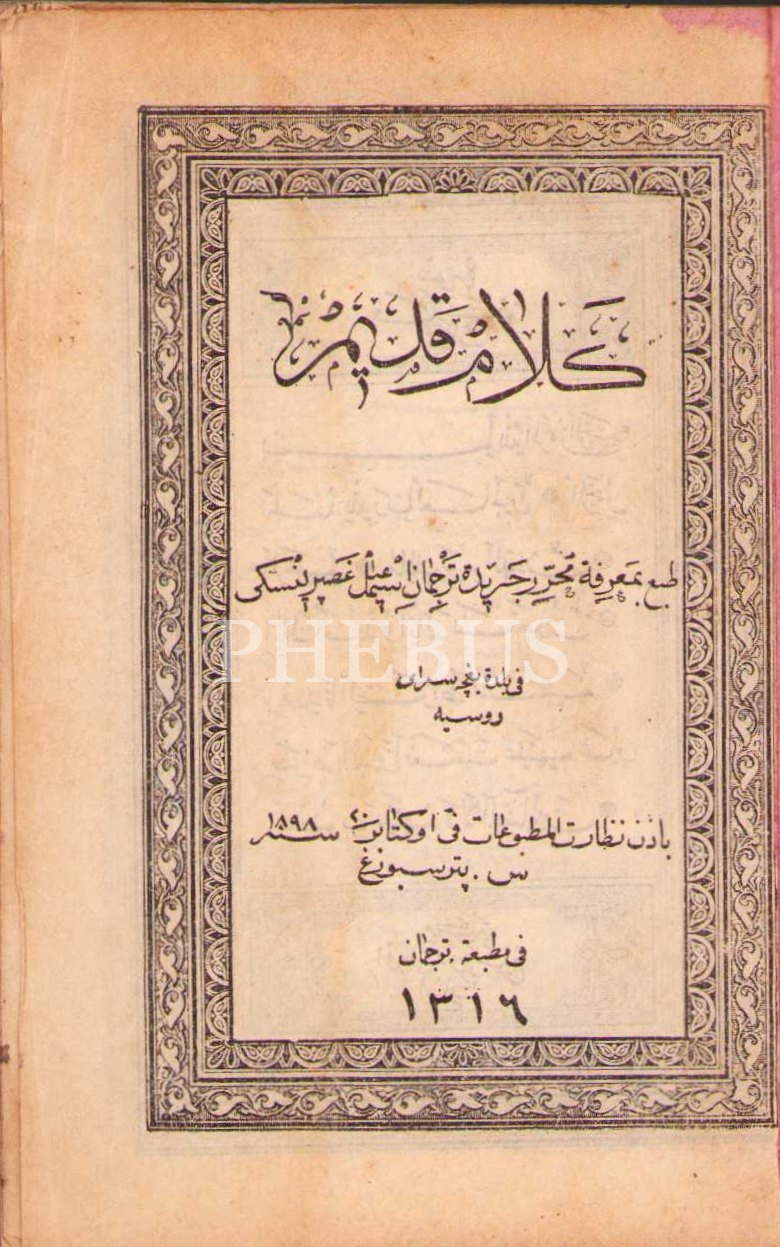 كلام قديم
طبع بمعرفة محرر جريدة ترجمان اسمعيل غصپرينسكى
PHEBUS
فى بلدة بغچه سراى
روسيه
باذن نظارت المطبوعات فى ٢٠ اوكتابر سنه ١٨٩٨
س . پترسبورغ
فى مطبعة ترجمان
١٣١٦